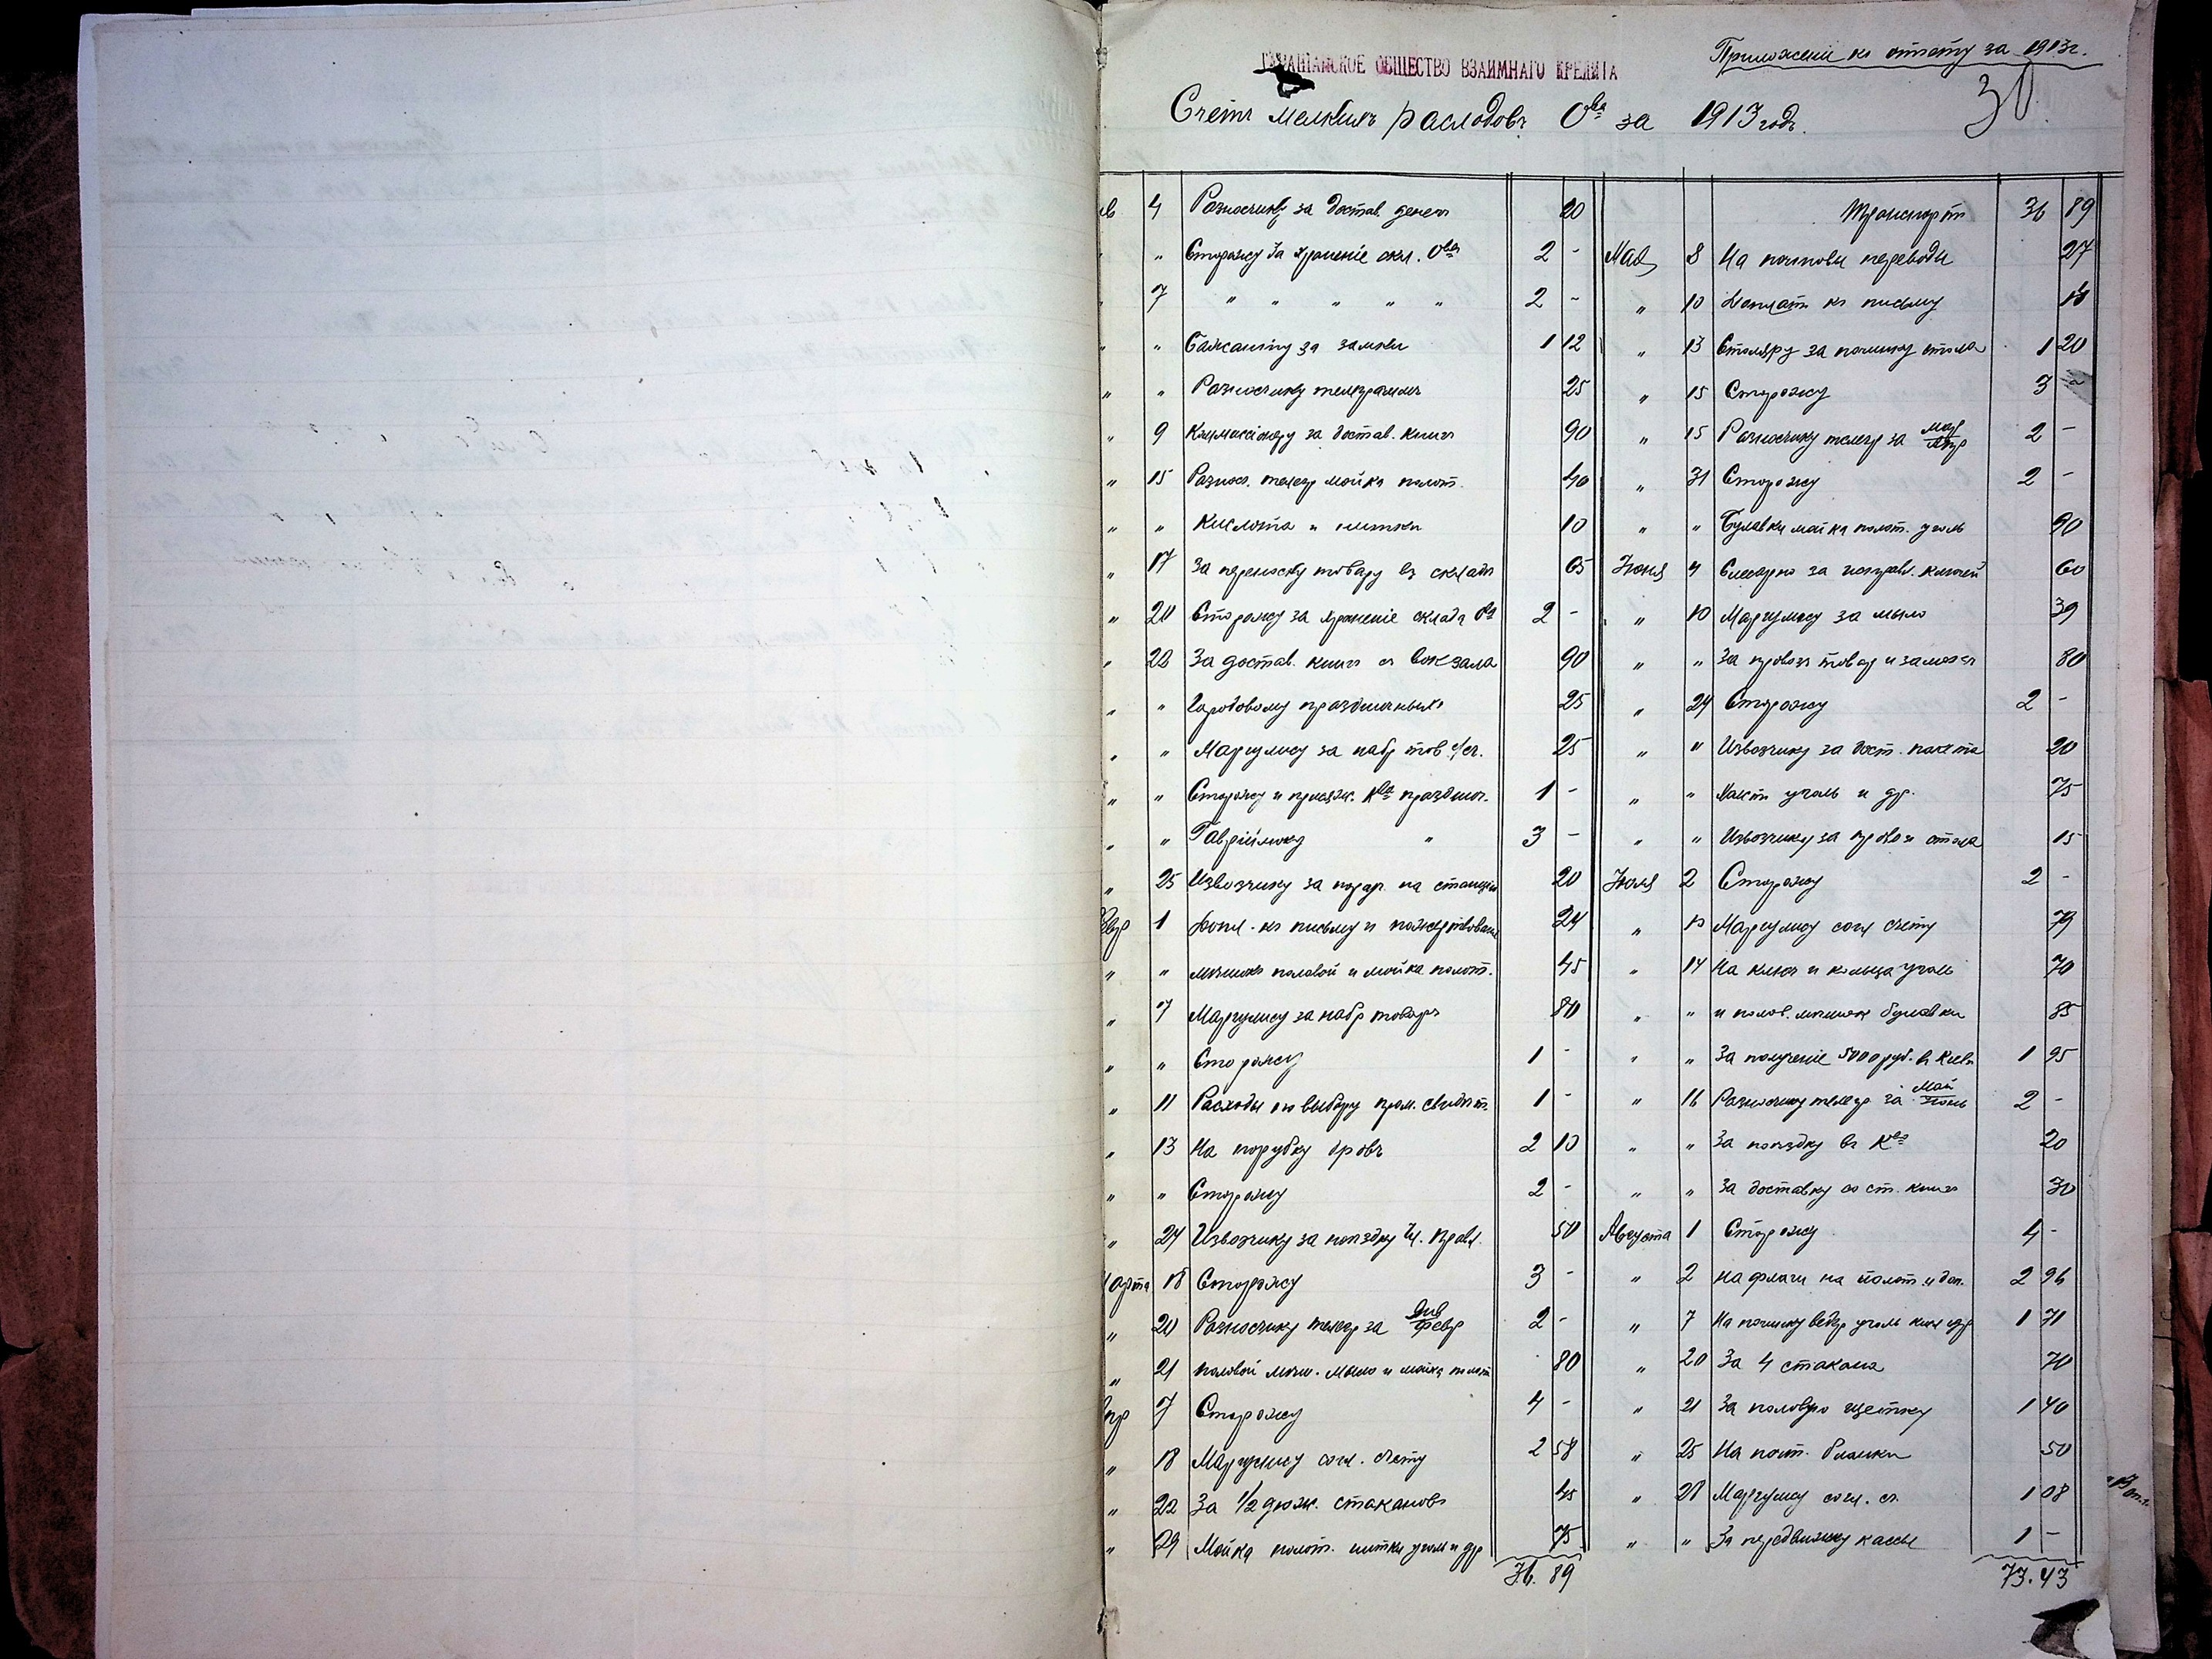 Приложенiе къ отчету за 1913г.
ОБЩЕСТВО ВЗАИМНАГО КРЕДИТА
30
Счетъ мелкихъ расходовъ О-ва за 1913 годъ.
4 Разносчику за достав. денегъ 20
" Сторожу за храненiе скл. О-ва 2 -
7 " " " " " 2 -
" " за замки 1 12
" " Разносчику телеграммъ 25
" 9 Коммисiонеру за достав. книгъ 90
" 15 Разнос. телегр мойка полот. 40
" " Кислота и нитки 10
" 17 За переноску товару въ складъ 65
" 20 Сторожу за храненiе склада О-ва 2 -
" 22 За достав. книгъ съ вокзала 90
" " Городовому праздничныхъ 25
" " Маргулису за набр тов. с/сч. 25
" " Сторожу и присяж. К-ва празднич. 1 -
" " " 3 -
" 25 Извозчику за на станцiю 20
1 Допл. къ письму и 24
" " мѣшокъ половой и мойка полот. 45
" 7 Маргулису за набр товаръ 80
" " Сторожу 1 -
" 11 Расходы по выбору пром. свидѣт. 1 -
" 13 На порубку дровъ 2 10
" " Сторожу 2 -
" 24 Извозчику за поѣздку Чл. Правл. 50
арта 18 Сторожу 3 -
" 20 Разносчику телегр за Янв Февр 2 -
" 21 половой мѣш. мыло и мойка полот 80
апр 7 Сторожу 4 -
" 18 Маргулису согл. счету 2 58
" 22 За 1/2 дюж. стакановъ 45
" 29 Мойка полот. нитки уголь и др 75
36. 89
Транспортъ 36 89
Мая 8 На почтовы переводы 27
" 10 Доплат. къ письму
" 13 Столяру за починку стола 1 20
" 15 Сторожу 3 -
" 15 Разносчику телегр за Апр 2 -
" 31 Сторожу 2 -
" " Булавки мойка полот. уголь 90
Iюня 4 Слесарю за исправл. ключей 60
" 10 Маргулису за мыло 39
" " За провозъ товар и замокъ 80
" 24 Сторожу 2 -
" " Извозчику за дост. пакета 20
" " уголь и др. 75
" " Извозчику за провозъ стола 15
Iюля 2 Сторожу 2 -
" 10 Маргулису согл счету 79
" 14 На ключ и кольца уголь 70
" " и полов. мѣшокъ булавки 85
" " За полученiе 5000 руб. въ Кiевѣ 1 95
" 16 Разносчику телегр. за Май Iюнь 2 -
" " За поѣздку въ К-въ 20
" " За доставку со ст. книгъ 30
Августа 1 Сторожу 4 -
" 2 На флаги на полот. и доп. 2 96
" 7 На починку ведер уголь и др 1 71
" 20 За 4 стакана 70
" 21 За половую щетку 1 40
" 25 На почт. бланки 50
" 28 Маргулису согл. сч. 1 08
" " За передвижку кассы 1 -
73. 43